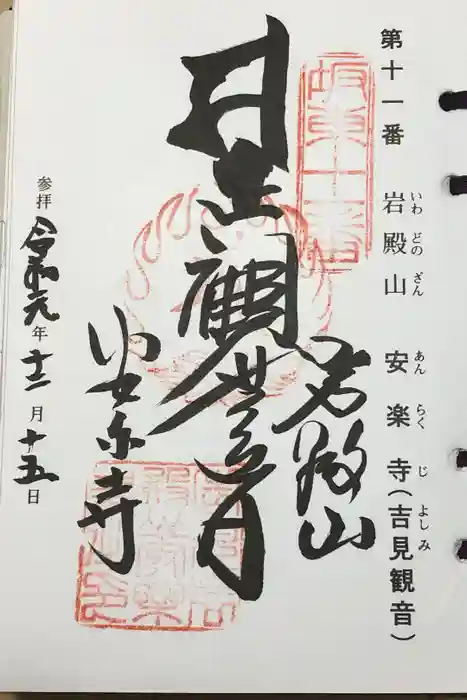 第十一番 岩殿山 安楽寺(吉見観音)
いわ どの ざん あん らく じ よしみ
坂東十一番
岩殿山
聖観世音
安楽寺
参拝 令和元年十二月十五日